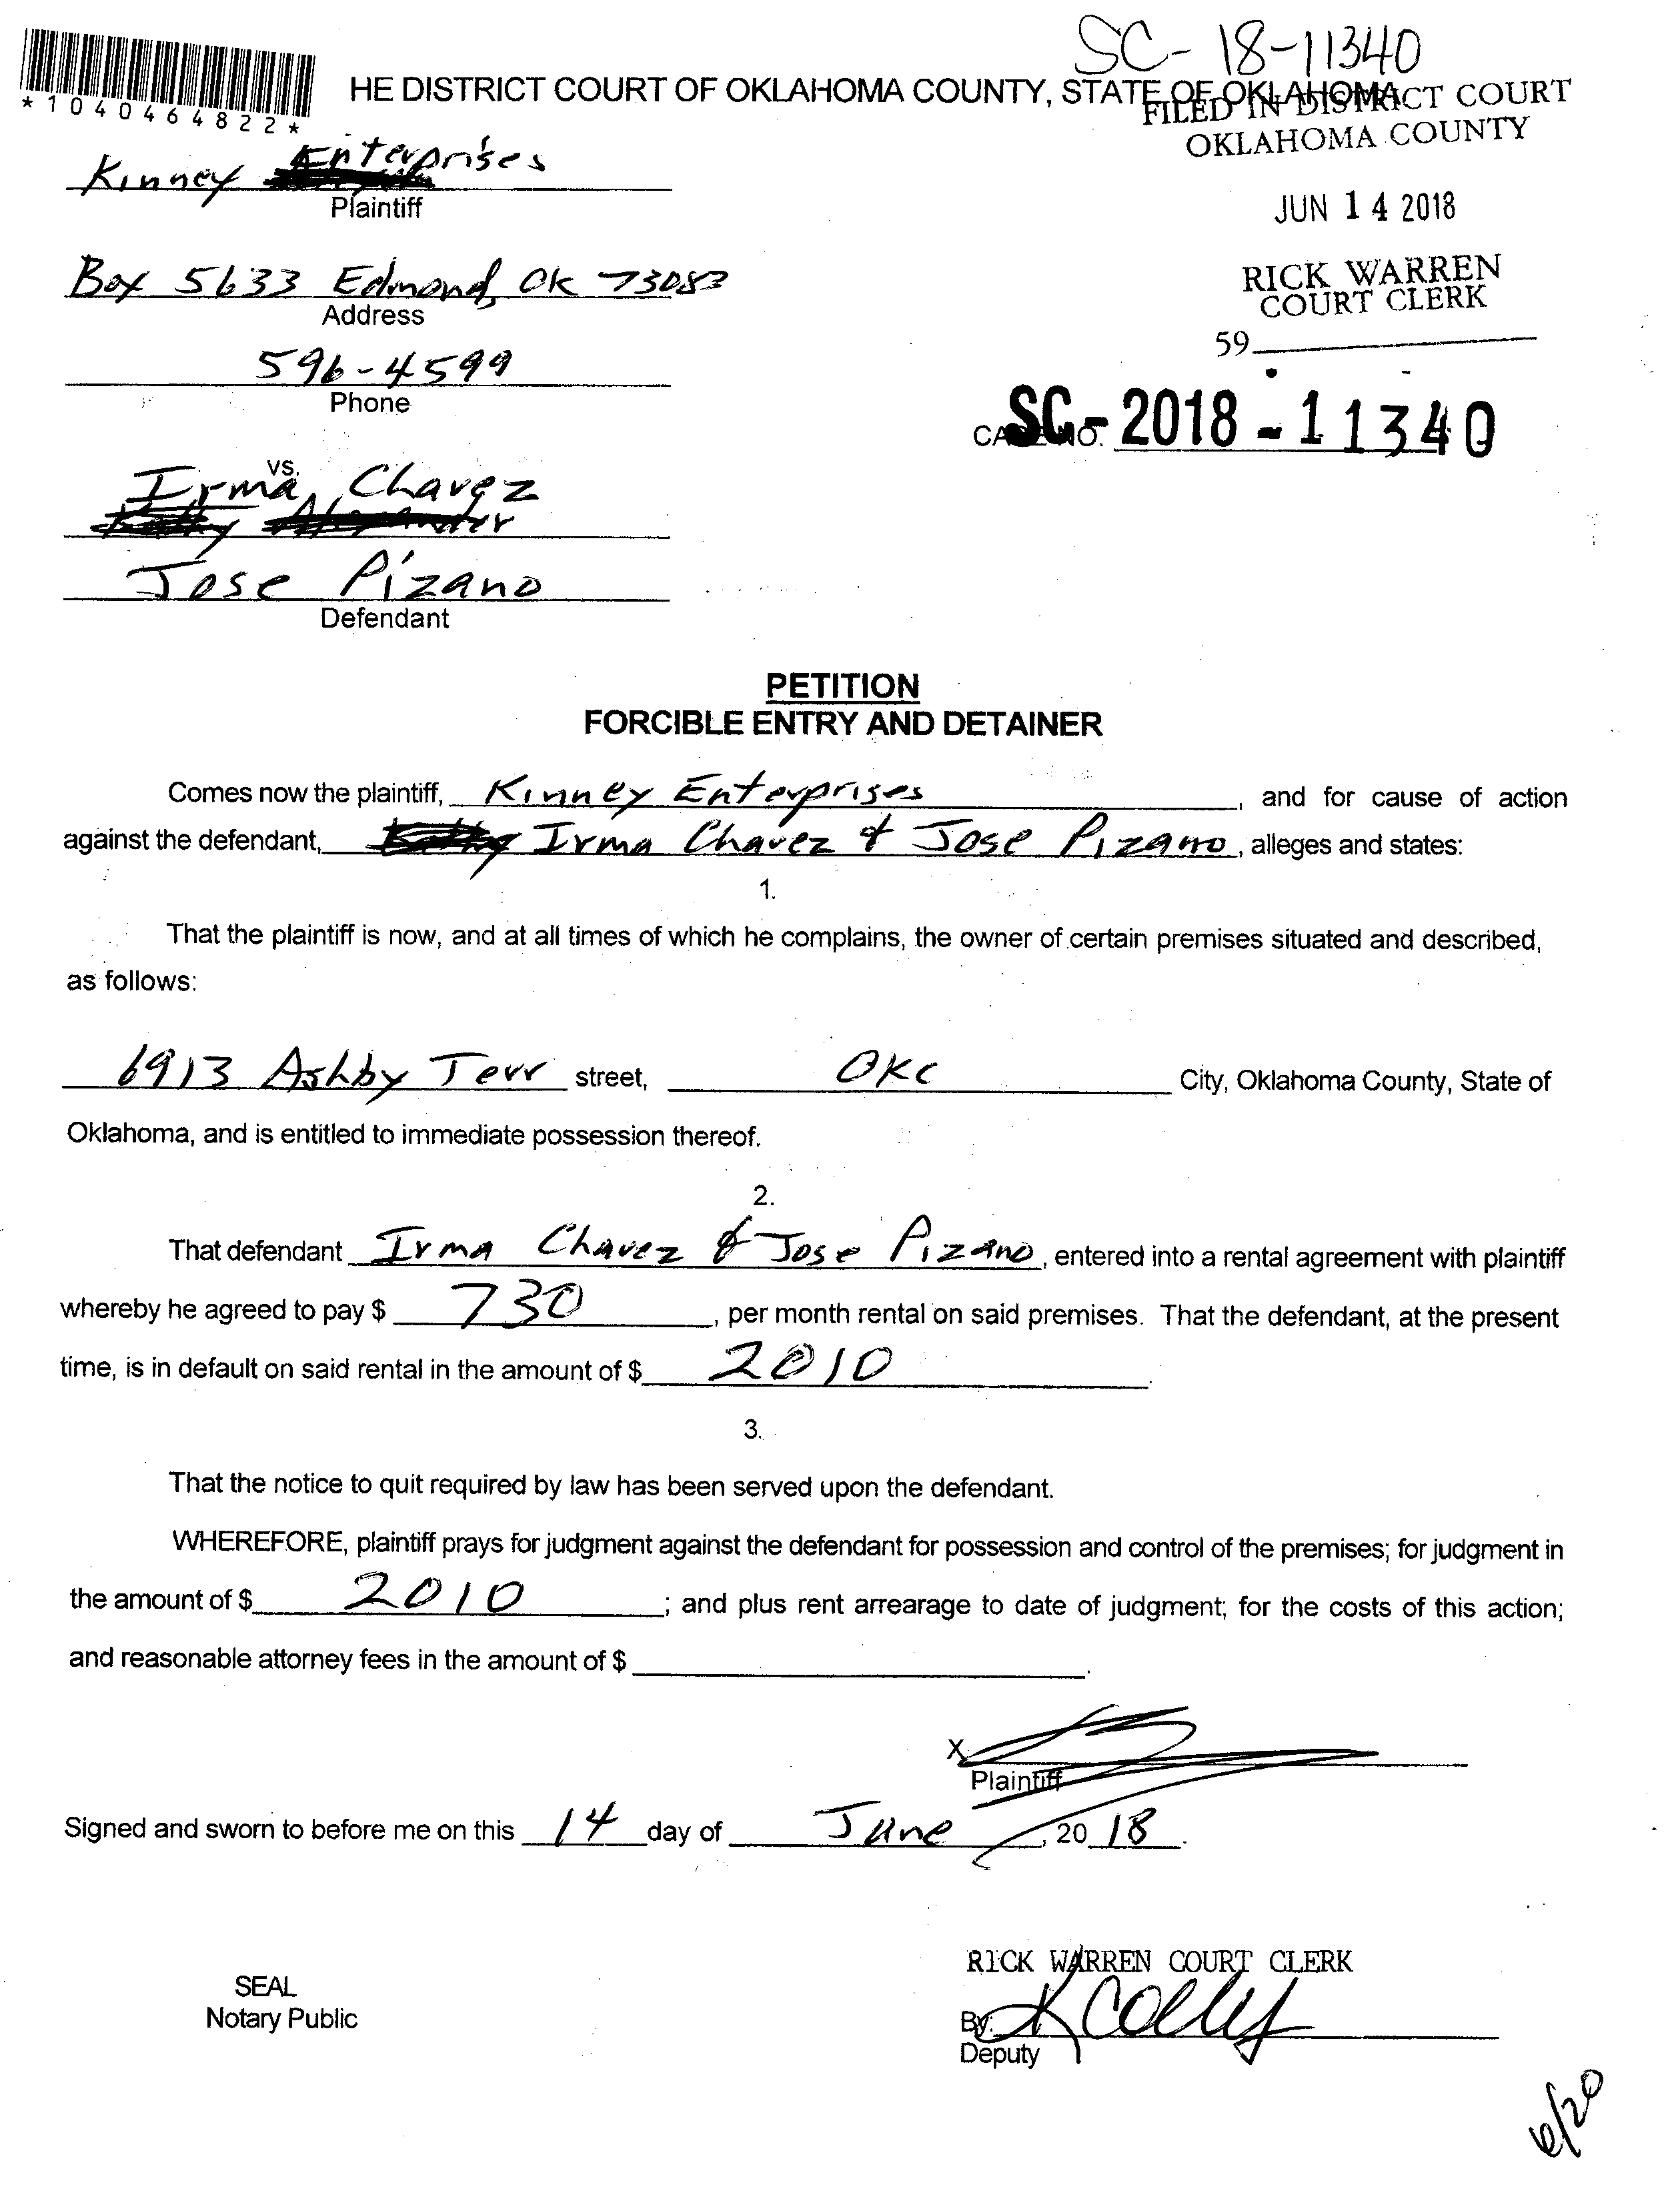 SC-18-11340
HE DISTRICT COURT OF OKLAHOMA COUNTY, STATE OF OKLAHOMA
*1040464822*
FILED IN DISTRICT COURT
OKLAHOMA COUNTY
Kinney Enterprises
Plaintiff
JUN 14 2018
Box 5633 Edmond, OK 73083
Address
RICK WARREN
COURT CLERK
59
596-4599
Phone
SC-2018-11340
vs.
Irma Chavez
Jose Pizano
Defendant
PETITION
FORCIBLE ENTRY AND DETAINER
Comes now the plaintiff, Kinney Enterprises, and for cause of action
against the defendant, Irma Chavez & Jose Pizano, alleges and states:
1.
That the plaintiff is now, and at all times of which he complains, the owner of certain premises situated and described,
as follows:
6913 Ashby Terr street, OKC City, Oklahoma County, State of
Oklahoma, and is entitled to immediate possession thereof.
2.
That defendant Irma Chavez & Jose Pizano, entered into a rental agreement with plaintiff
whereby he agreed to pay $ 730, per month rental on said premises. That the defendant, at the present
time, is in default on said rental in the amount of $ 2010.
3.
That the notice to quit required by law has been served upon the defendant.
WHEREFORE, plaintiff prays for judgment against the defendant for possession and control of the premises; for judgment in
the amount of $ 2010; and plus rent arrearage to date of judgment; for the costs of this action;
and reasonable attorney fees in the amount of $ .
X
Plaintiff
Signed and sworn to before me on this 14 day of June, 20 18.
RICK WARREN COURT CLERK
SEAL
Notary Public
By:
Deputy
6/20